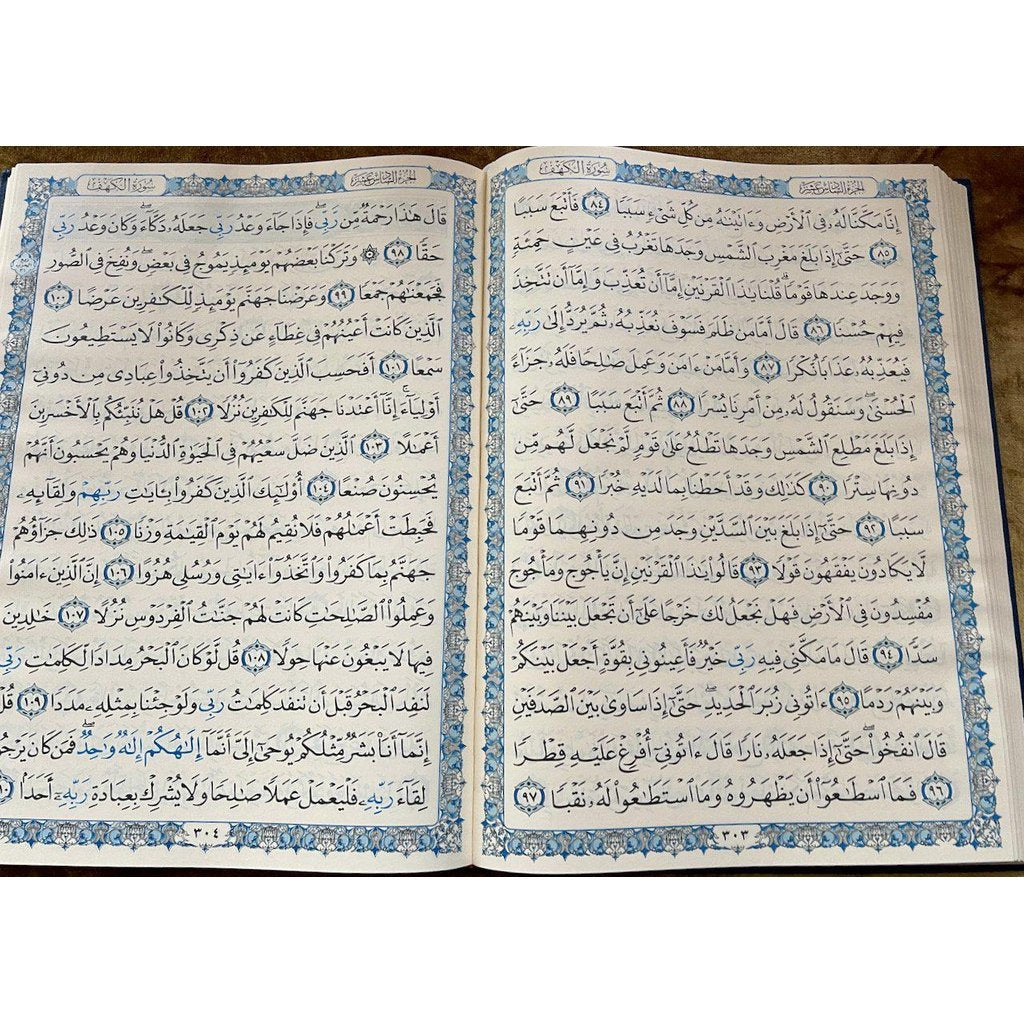 الجزء السادس عشر
سورة الكهف
إِنَّا مَكَّنَّا لَهُۥ فِي ٱلۡأَرۡضِ وَءَاتَيۡنَٰهُ مِن كُلِّ شَيۡءٖ سَبَبٗا ٨٤ فَأَتۡبَعَ سَبَبًا
٨٥ حَتَّىٰٓ إِذَا بَلَغَ مَغۡرِبَ ٱلشَّمۡسِ وَجَدَهَا تَغۡرُبُ فِي عَيۡنٍ حَمِئَةٖ
وَوَجَدَ عِندَهَا قَوۡمٗاۖ قُلۡنَا يَٰذَا ٱلۡقَرۡنَيۡنِ إِمَّآ أَن تُعَذِّبَ وَإِمَّآ أَن تَتَّخِذَ
فِيهِمۡ حُسۡنٗا ٨٦ قَالَ أَمَّا مَن ظَلَمَ فَسَوۡفَ نُعَذِّبُهُۥ ثُمَّ يُرَدُّ إِلَىٰ رَبِّهِۦ
فَيُعَذِّبُهُۥ عَذَابٗا نُّكۡرٗا ٨٧ وَأَمَّا مَنۡ ءَامَنَ وَعَمِلَ صَٰلِحٗا فَلَهُۥ جَزَآءً
ٱلۡحُسۡنَىٰۖ وَسَنَقُولُ لَهُۥ مِنۡ أَمۡرِنَا يُسۡرٗا ٨٨ ثُمَّ أَتۡبَعَ سَبَبًا ٨٩ حَتَّىٰٓ
إِذَا بَلَغَ مَطۡلِعَ ٱلشَّمۡسِ وَجَدَهَا تَطۡلُعُ عَلَىٰ قَوۡمٖ لَّمۡ نَجۡعَل لَّهُم مِّن
دُونِهَا سِتۡرٗا ٩٠ كَذَٰلِكَۖ وَقَدۡ أَحَطۡنَا بِمَا لَدَيۡهِ خُبۡرٗا ٩١ ثُمَّ أَتۡبَعَ
سَبَبًا ٩٢ حَتَّىٰٓ إِذَا بَلَغَ بَيۡنَ ٱلسَّدَّيۡنِ وَجَدَ مِن دُونِهِمَا قَوۡمٗا
لَّا يَكَادُونَ يَفۡقَهُونَ قَوۡلٗا ٩٣ قَالُواْ يَٰذَا ٱلۡقَرۡنَيۡنِ إِنَّ يَأۡجُوجَ وَمَأۡجُوجَ
مُفۡسِدُونَ فِي ٱلۡأَرۡضِ فَهَلۡ نَجۡعَلُ لَكَ خَرۡجًا عَلَىٰٓ أَن تَجۡعَلَ بَيۡنَنَا وَبَيۡنَهُمۡ
سَدّٗا ٩٤ قَالَ مَا مَكَّنِّي فِيهِ رَبِّي خَيۡرٞ فَأَعِينُونِي بِقُوَّةٍ أَجۡعَلۡ بَيۡنَكُمۡ
وَبَيۡنَهُمۡ رَدۡمًا ٩٥ ءَاتُونِي زُبَرَ ٱلۡحَدِيدِۖ حَتَّىٰٓ إِذَا سَاوَىٰ بَيۡنَ ٱلصَّدَفَيۡنِ
قَالَ ٱنفُخُواْۖ حَتَّىٰٓ إِذَا جَعَلَهُۥ نَارٗا قَالَ ءَاتُونِيٓ أُفۡرِغۡ عَلَيۡهِ قِطۡرٗا
٩٦ فَمَا ٱسۡطَٰعُوٓاْ أَن يَظۡهَرُوهُ وَمَا ٱسۡتَطَٰعُواْ لَهُۥ نَقۡبٗا ٩٧
٣٠٣
الجزء السادس عشر
سورة الكهف
قَالَ هَٰذَا رَحۡمَةٞ مِّن رَّبِّيۖ فَإِذَا جَآءَ وَعۡدُ رَبِّي جَعَلَهُۥ دَكَّآءَۖ وَكَانَ وَعۡدُ رَبِّي
حَقّٗا ٩٨ ۞ وَتَرَكۡنَا بَعۡضَهُمۡ يَوۡمَئِذٖ يَمُوجُ فِي بَعۡضٖۖ وَنُفِخَ فِي ٱلصُّورِ
فَجَمَعۡنَٰهُمۡ جَمۡعٗا ٩٩ وَعَرَضۡنَا جَهَنَّمَ يَوۡمَئِذٖ لِّلۡكَٰفِرِينَ عَرۡضًا ١٠٠
ٱلَّذِينَ كَانَتۡ أَعۡيُنُهُمۡ فِي غِطَآءٍ عَن ذِكۡرِي وَكَانُواْ لَا يَسۡتَطِيعُونَ
سَمۡعًا ١٠١ أَفَحَسِبَ ٱلَّذِينَ كَفَرُوٓاْ أَن يَتَّخِذُواْ عِبَادِي مِن دُونِيٓ
أَوۡلِيَآءَۚ إِنَّآ أَعۡتَدۡنَا جَهَنَّمَ لِلۡكَٰفِرِينَ نُزُلٗا ١٠٢ قُلۡ هَلۡ نُنَبِّئُكُم بِٱلۡأَخۡسَرِينَ
أَعۡمَٰلًا ١٠٣ ٱلَّذِينَ ضَلَّ سَعۡيُهُمۡ فِي ٱلۡحَيَوٰةِ ٱلدُّنۡيَا وَهُمۡ يَحۡسَبُونَ أَنَّهُمۡ
يُحۡسِنُونَ صُنۡعًا ١٠٤ أُوْلَٰٓئِكَ ٱلَّذِينَ كَفَرُواْ بِـَٔايَٰتِ رَبِّهِمۡ وَلِقَآئِهِۦ
فَحَبِطَتۡ أَعۡمَٰلُهُمۡ فَلَا نُقِيمُ لَهُمۡ يَوۡمَ ٱلۡقِيَٰمَةِ وَزۡنٗا ١٠٥ ذَٰلِكَ جَزَآؤُهُمۡ
جَهَنَّمُ بِمَا كَفَرُواْ وَٱتَّخَذُوٓاْ ءَايَٰتِي وَرُسُلِي هُزُوًا ١٠٦ إِنَّ ٱلَّذِينَ ءَامَنُواْ
وَعَمِلُواْ ٱلصَّٰلِحَٰتِ كَانَتۡ لَهُمۡ جَنَّٰتُ ٱلۡفِرۡدَوۡسِ نُزُلًا ١٠٧ خَٰلِدِينَ
فِيهَا لَا يَبۡغُونَ عَنۡهَا حِوَلٗا ١٠٨ قُل لَّوۡ كَانَ ٱلۡبَحۡرُ مِدَادٗا لِّكَلِمَٰتِ رَبِّي
لَنَفِدَ ٱلۡبَحۡرُ قَبۡلَ أَن تَنفَدَ كَلِمَٰتُ رَبِّي وَلَوۡ جِئۡنَا بِمِثۡلِهِۦ مَدَدٗا ١٠٩ قُلۡ
إِنَّمَآ أَنَا۠ بَشَرٞ مِّثۡلُكُمۡ يُوحَىٰٓ إِلَيَّ أَنَّمَآ إِلَٰهُكُمۡ إِلَٰهٞ وَٰحِدٞۖ فَمَن كَانَ يَرۡجُواْ
لِقَآءَ رَبِّهِۦ فَلۡيَعۡمَلۡ عَمَلٗا صَٰلِحٗا وَلَا يُشۡرِكۡ بِعِبَادَةِ رَبِّهِۦٓ أَحَدَۢا
٣٠٤